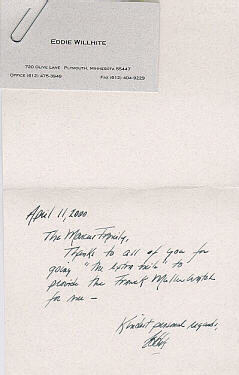 EDDIE WILLHITE
720 OLIVE LANE PLYMOUTH, MINNESOTA 55447
OFFICE (612) 475-3949 FAX (612) 404-9229
April 11, 2000
The Marcus Family,
Thanks to all of you for
going "the extra mile" to
provide the Franck Muller watch
for me —
Kindest personal regards,